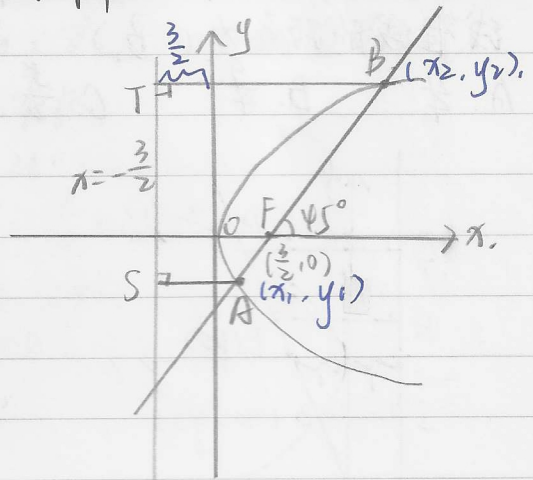 3/2
y
B (x2, y2).
T
x=-3/2
O
F
45°
x.
(3/2, 0)
S
(x1, y1)
A